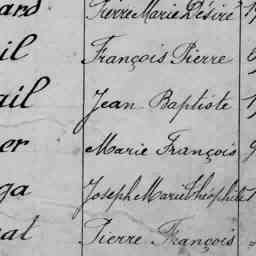 ard Pierre Marie Désiré
il François Pierre
ail Jean Baptiste
er Marie François
ga Joseph Marie Théophile
at Pierre François